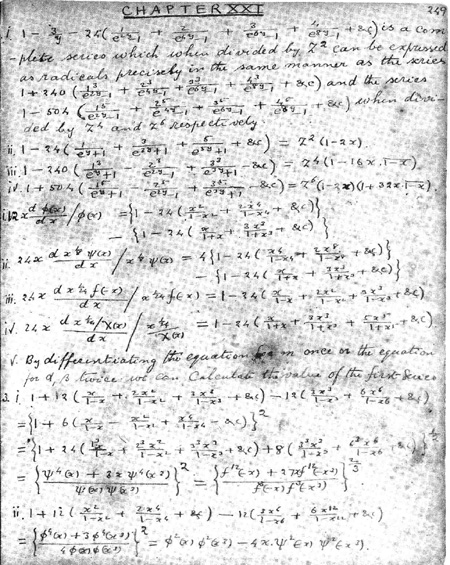 CHAPTER XXI 249
i. 1 - 3/y - 24(1/(e^2y-1) + 2/(e^4y-1) + 3/(e^6y-1) + 4/(e^8y-1) + &c) is a com
-plete series which when divided by Z^2 can be expressed
as radicals precisely in the same manner as the series
1 + 240(1^3/(e^2y-1) + 2^3/(e^4y-1) + 3^3/(e^6y-1) + 4^3/(e^8y-1) + &c) and the series
1 - 504(1^5/(e^2y-1) + 2^5/(e^4y-1) + 3^5/(e^6y-1) + 4^5/(e^8y-1) + &c) when divi-
ded by Z^4 and Z^6 respectively.
ii. 1 - 24(1/(e^y+1) + 3/(e^3y+1) + 5/(e^5y+1) + &c) = Z^2(1-2x).
iii. 1 - 240(1^3/(e^y+1) - 2^3/ - &c) = Z^4(1-16x.1-x)
iv. 1 + 504(1^5/(e^y+1) - 2^5/ + 3^5/ - &c) = Z^6(1-2x)(1+32x.1-x).
i. 12x dφ(x)/dx / φ(x) = {1 - 24(x^2/(1-x^2) + 2x^4/(1-x^4) + &c)}
- {1 - 24(x/(1+x) + 3x^3/(1+x^3) + &c)}
ii. 24x d x^⅛ψ(x)/dx / x^⅛ψ(x) = 4{1 - 24(x^4/(1-x^4) + 2x^8/(1-x^8) + &c)}
- {1 - 24(x/(1+x) + 3x^3/(1+x^3) + &c)}
iii. 24x d x^1/24 f(-x)/dx / x^1/24 f(-x) = 1 - 24(x/(1-x) + 2x^2/(1-x^2) + 3x^3/(1-x^3) + &c)
iv. 24x d x^1/24/χ(x)/dx / x^1/24/χ(x) = 1 - 24(x/(1+x) + 3x^3/(1+x^3) + 5x^5/(1+x^5) + &c)
v. By differentiating the equation for m once or the equation
for α, β twice we can calculate the value of the first series
i. 1 + 12(x/(1-x) + 2x^2/(1-x^2) + &c) - 12(3x^3/(1-x^3) + 6x^6/(1-x^6) + &c)
= {1 + 6(x/(1-x) - x^2/(1-x^2) + x^4/(1-x^4) - &c)}^2
= {1 + 24( + 2^3x^2/(1-x^2) + 3^3x^3/(1-x^3) + &c) + 8(3^3x^3/(1-x^3) + 6^3x^6/(1-x^6) + &c)}^½
= {(ψ^4(x) + 3xψ^4(x^3))/(ψ(x)ψ(x^3))}^2 = {(f^12(-x) + 27x f^12(-x^3))/(f^3(-x) f^3(-x^3))}^2/3
ii. 1 + 12(x^2/(1-x^2) + 2x^4/(1-x^4) + &c) - 12(3x^6/(1-x^6) + 6x^12/(1-x^12) + &c)
= {(φ^4(x) + 3φ^4(x^3))/(4φ(x)φ(x^3))}^2 = φ^2(x)φ^2(x^3) - 4x.ψ^2(x)ψ^2(x^3).